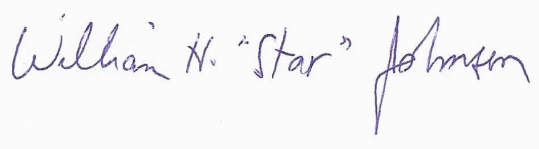 William H. "Star" Johnson